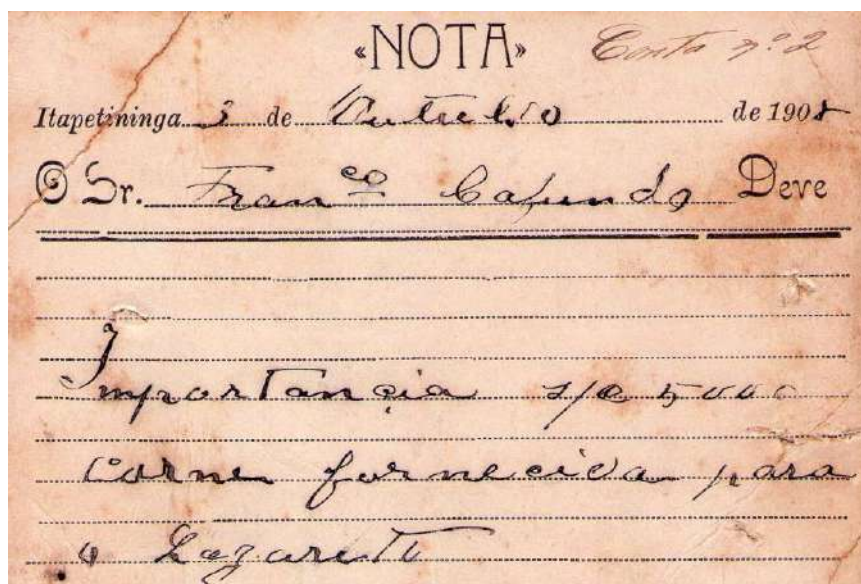 «NOTA» Conta nº 2
Itapetininga 3 de Outubro de 1908
O Sr. Franco Deve
Importancia 5000
Carne fornecida para
o Lazareto